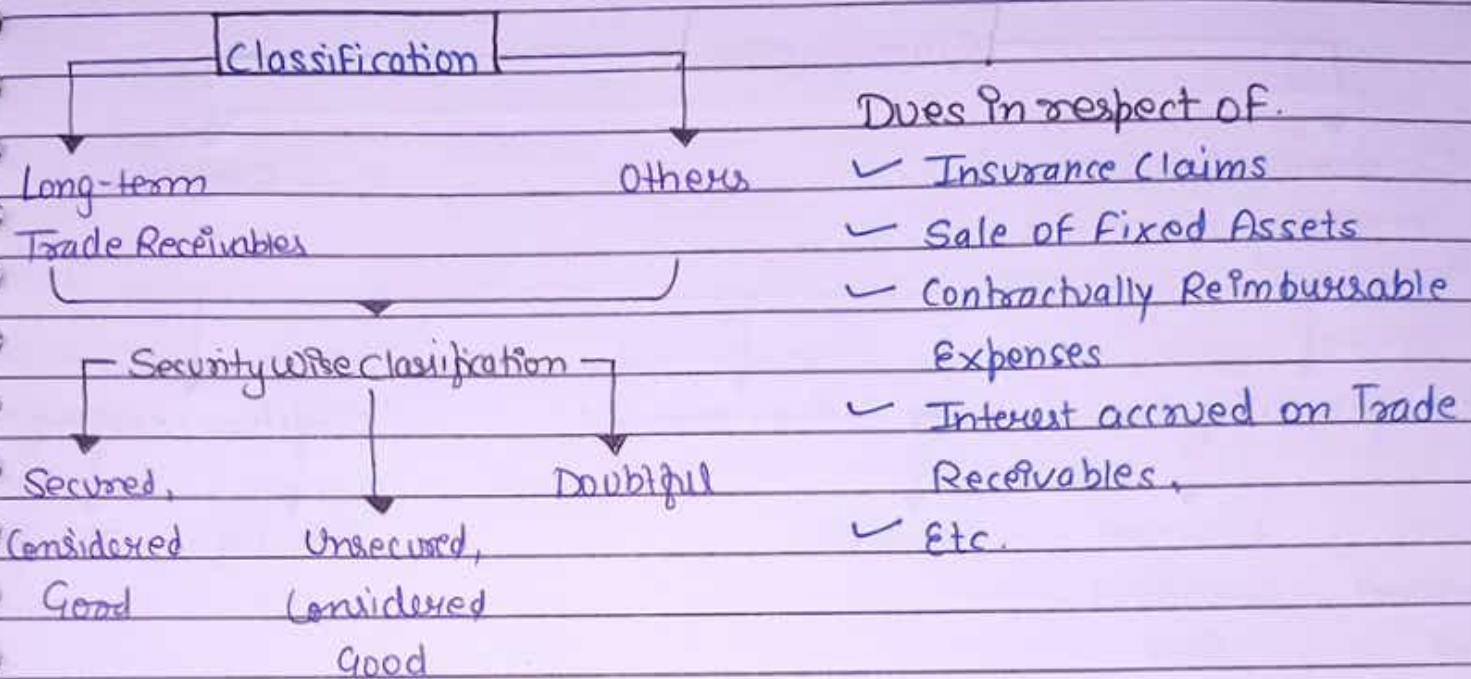 Classification
Long-term
Trade Receivables
Others
Security wise classification
Secured,
Considered
Good
Unsecured,
Considered
Good
Doubtful
Dues in respect of.
✓ Insurance Claims
✓ Sale of Fixed Assets
✓ Contractually Reimbursable
Expenses
✓ Interest accrued on Trade
Receivables,
✓ Etc.